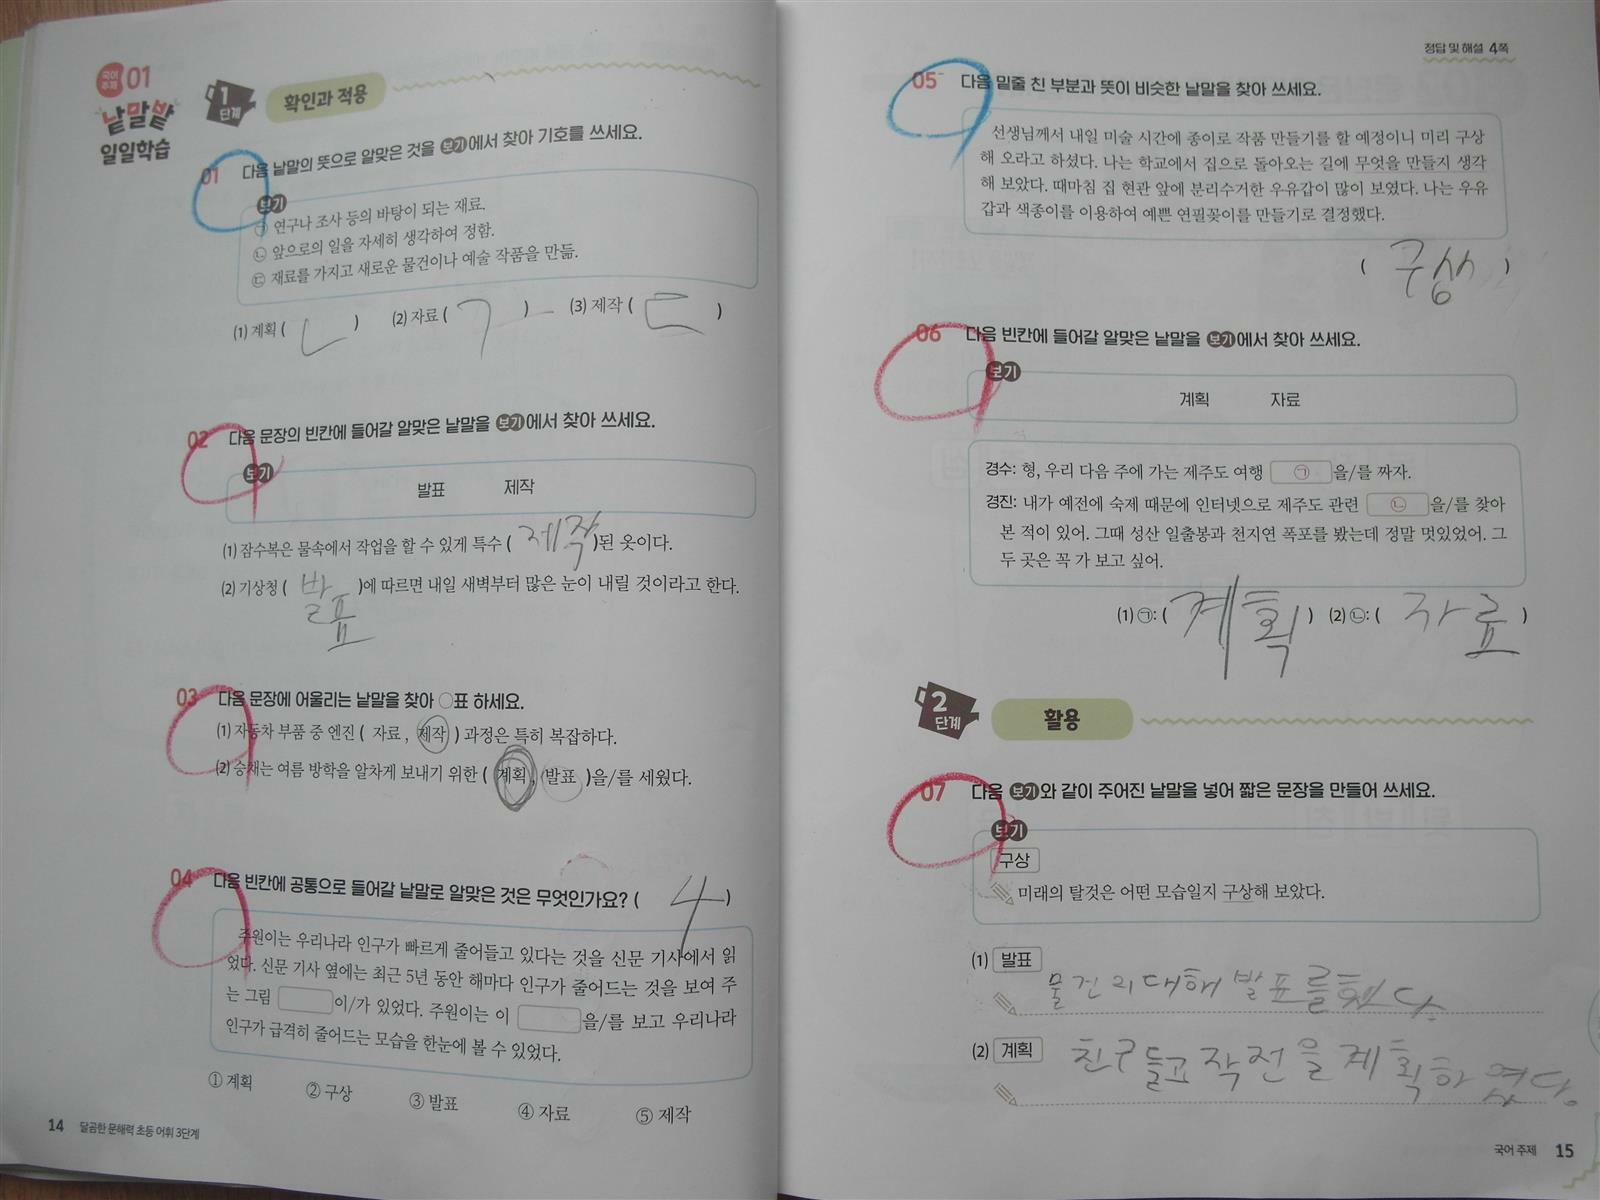 국어 주제 01
낱말밭
일일학습
1단계 확인과 적용
01 다음 낱말의 뜻으로 알맞은 것을 보기에서 찾아 기호를 쓰세요.
보기
㉠ 연구나 조사 등의 바탕이 되는 재료.
㉡ 앞으로의 일을 자세히 생각하여 정함.
㉢ 재료를 가지고 새로운 물건이나 예술 작품을 만듦.
(1) 계획 ( ㄴ ) (2) 자료 ( ㄱ ) (3) 제작 ( ㄷ )
02 다음 문장의 빈칸에 들어갈 알맞은 낱말을 보기에서 찾아 쓰세요.
보기
발표 제작
(1) 잠수복은 물속에서 작업을 할 수 있게 특수 ( 제작 )된 옷이다.
(2) 기상청 ( 발표 )에 따르면 내일 새벽부터 많은 눈이 내릴 것이라고 한다.
03 다음 문장에 어울리는 낱말을 찾아 ○표 하세요.
(1) 자동차 부품 중 엔진 ( 자료, 제작 ) 과정은 특히 복잡하다.
(2) 승채는 여름 방학을 알차게 보내기 위한 ( 계획, 발표 )을/를 세웠다.
04 다음 빈칸에 공통으로 들어갈 낱말로 알맞은 것은 무엇인가요? ( 4 )
주원이는 우리나라 인구가 빠르게 줄어들고 있다는 것을 신문 기사에서 읽
었다. 신문 기사 옆에는 최근 5년 동안 해마다 인구가 줄어드는 것을 보여 주
는 그림 이/가 있었다. 주원이는 이 을/를 보고 우리나라
인구가 급격히 줄어드는 모습을 한눈에 볼 수 있었다.
① 계획 ② 구상 ③ 발표 ④ 자료 ⑤ 제작
14 달곰한 문해력 초등 어휘 3단계
정답 및 해설 4쪽
05 다음 밑줄 친 부분과 뜻이 비슷한 낱말을 찾아 쓰세요.
선생님께서 내일 미술 시간에 종이로 작품 만들기를 할 예정이니 미리 구상
해 오라고 하셨다. 나는 학교에서 집으로 돌아오는 길에 무엇을 만들지 생각
해 보았다. 때마침 집 현관 앞에 분리수거한 우유갑이 많이 보였다. 나는 우유
갑과 색종이를 이용하여 예쁜 연필꽂이를 만들기로 결정했다.
( 구상 )
06 다음 빈칸에 들어갈 알맞은 낱말을 보기에서 찾아 쓰세요.
보기
계획 자료
경수: 형, 우리 다음 주에 가는 제주도 여행 ㉠ 을/를 짜자.
경진: 내가 예전에 숙제 때문에 인터넷으로 제주도 관련 ㉡ 을/를 찾아
본 적이 있어. 그때 성산 일출봉과 천지연 폭포를 봤는데 정말 멋있었어. 그
두 곳은 꼭 가 보고 싶어.
(1) ㉠: ( 계획 ) (2) ㉡: ( 자료 )
2단계 활용
07 다음 보기와 같이 주어진 낱말을 넣어 짧은 문장을 만들어 쓰세요.
보기
구상
미래의 탈것은 어떤 모습일지 구상해 보았다.
(1) 발표
물건의대해 발표를했다.
(2) 계획
친구들고 작전을 계획하였다.
국어 주제 15